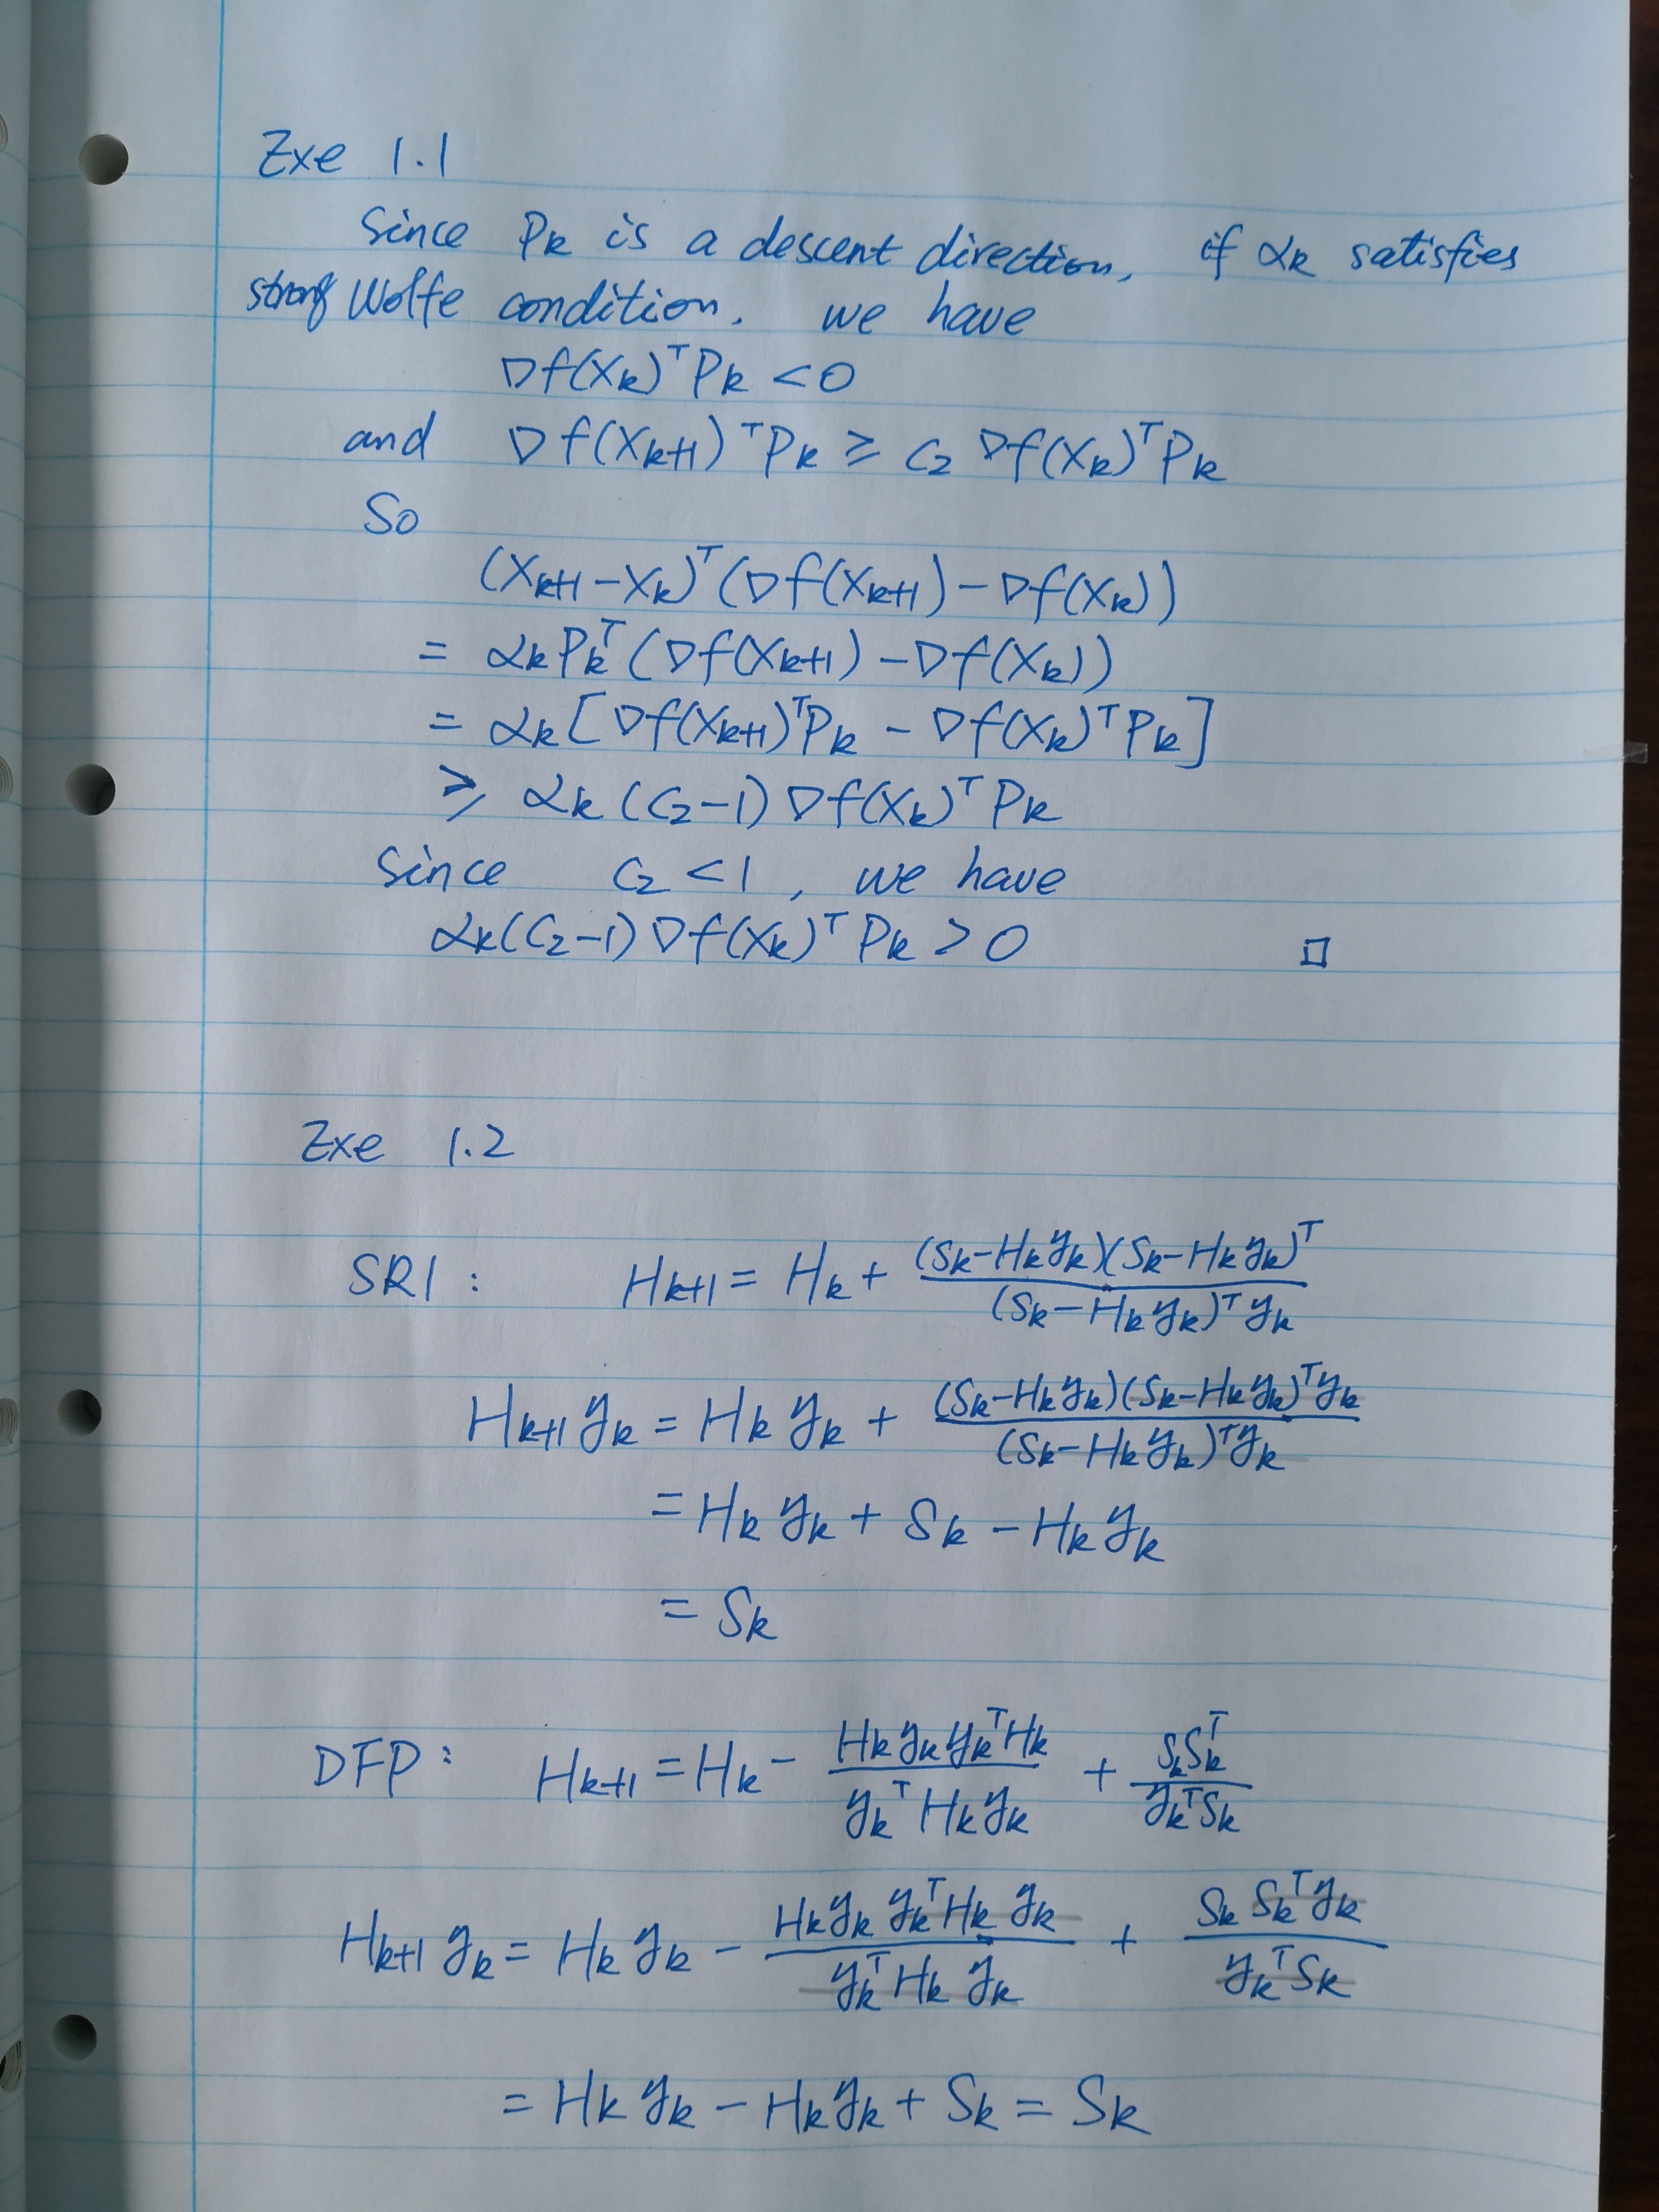 Exe 1.1
Since Pₖ is a descent direction, if αₖ satisfies
strong Wolfe condition. we have
∇f(xₖ)ᵀPₖ < 0
and ∇f(xₖ₊₁)ᵀPₖ ≥ c₂ ∇f(xₖ)ᵀPₖ
So
(xₖ₊₁ − xₖ)ᵀ(∇f(xₖ₊₁) − ∇f(xₖ))
= αₖPₖᵀ(∇f(xₖ₊₁) − ∇f(xₖ))
= αₖ[∇f(xₖ₊₁)ᵀPₖ − ∇f(xₖ)ᵀPₖ]
≥ αₖ(c₂−1)∇f(xₖ)ᵀPₖ
Since c₂ < 1, we have
αₖ(c₂−1)∇f(xₖ)ᵀPₖ > 0 □
Exe 1.2
SR1 : Hₖ₊₁ = Hₖ + (Sₖ−Hₖyₖ)(Sₖ−Hₖyₖ)ᵀ / (Sₖ−Hₖyₖ)ᵀyₖ
Hₖ₊₁yₖ = Hₖyₖ + (Sₖ−Hₖyₖ)(Sₖ−Hₖyₖ)ᵀyₖ / (Sₖ−Hₖyₖ)ᵀyₖ
= Hₖyₖ + Sₖ − Hₖyₖ
= Sₖ
DFP : Hₖ₊₁ = Hₖ − HₖyₖyₖᵀHₖ / yₖᵀHₖyₖ + SₖSₖᵀ / yₖᵀSₖ
Hₖ₊₁yₖ = Hₖyₖ − HₖyₖyₖᵀHₖyₖ / yₖᵀHₖyₖ + SₖSₖᵀyₖ / yₖᵀSₖ
= Hₖyₖ − Hₖyₖ + Sₖ = Sₖ